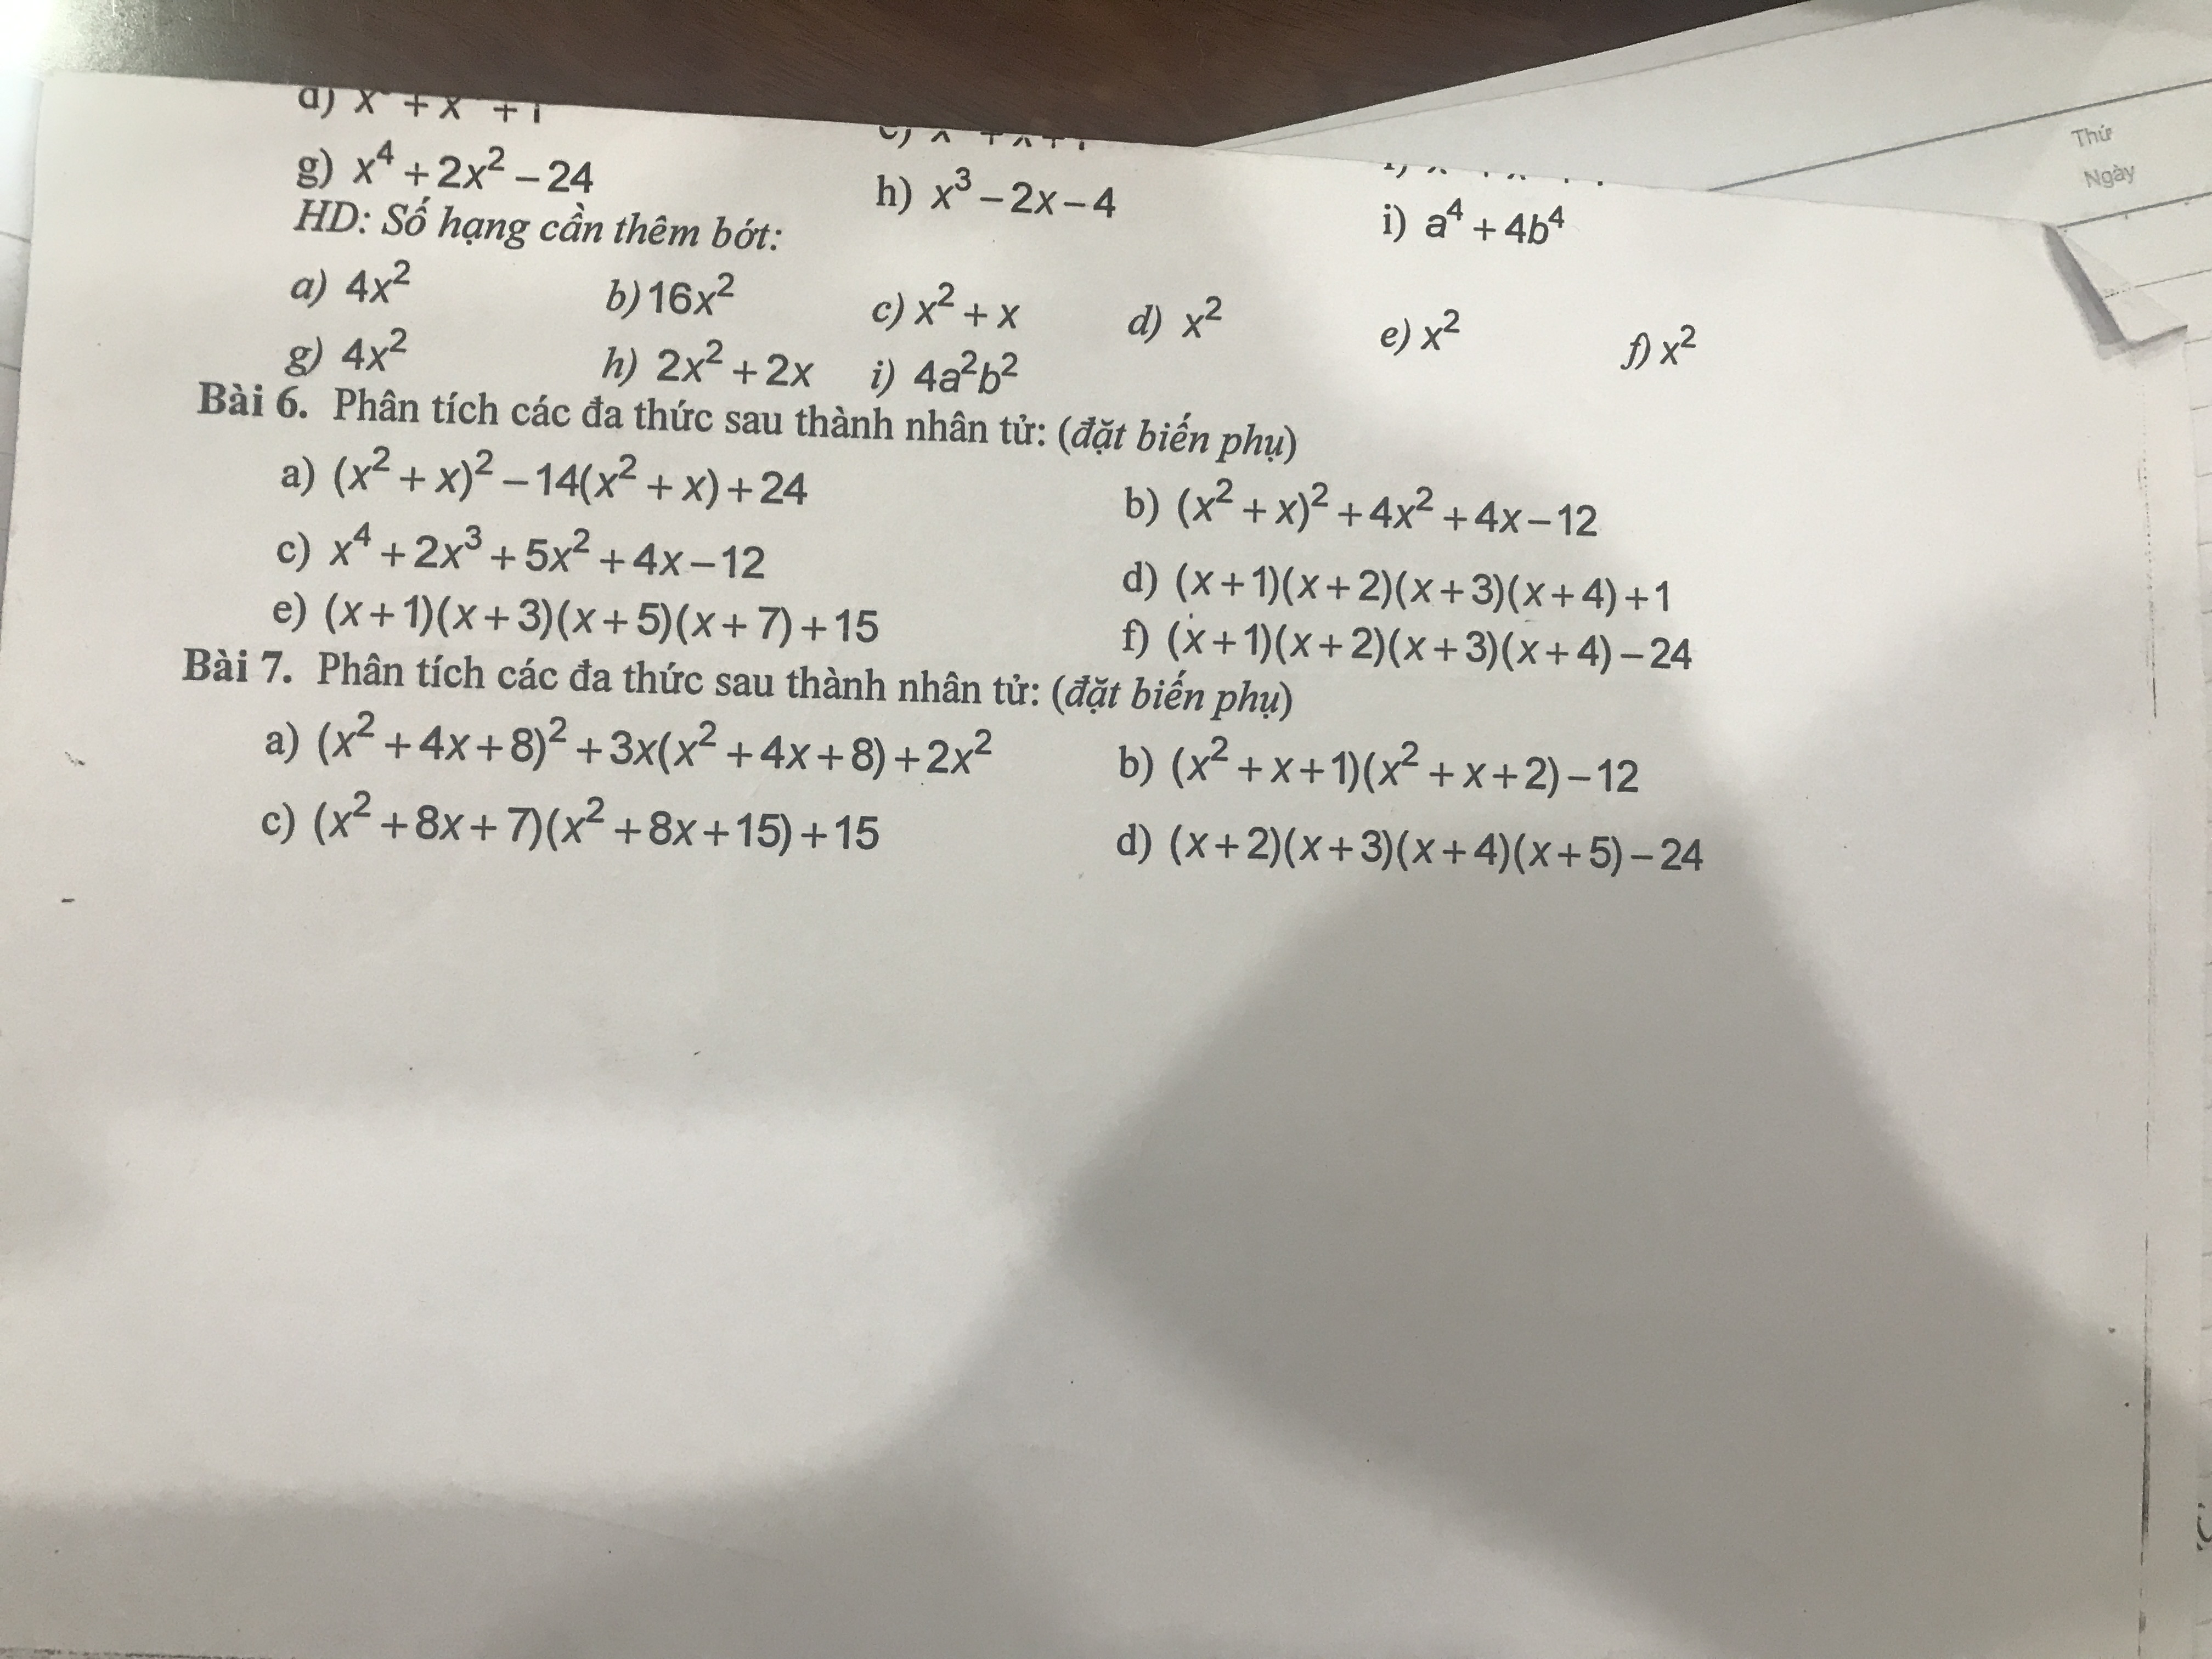 Thứ
Ngày
g) x⁴ + 2x² – 24 h) x³ – 2x – 4 i) a⁴ + 4b⁴
HD: Số hạng cần thêm bớt:
a) 4x² b) 16x² c) x² + x d) x² e) x² f) x²
g) 4x² h) 2x² + 2x i) 4a²b²
Bài 6. Phân tích các đa thức sau thành nhân tử: (đặt biến phụ)
a) (x² + x)² – 14(x² + x) + 24 b) (x² + x)² + 4x² + 4x – 12
c) x⁴ + 2x³ + 5x² + 4x – 12 d) (x + 1)(x + 2)(x + 3)(x + 4) + 1
e) (x + 1)(x + 3)(x + 5)(x + 7) + 15 f) (x + 1)(x + 2)(x + 3)(x + 4) – 24
Bài 7. Phân tích các đa thức sau thành nhân tử: (đặt biến phụ)
a) (x² + 4x + 8)² + 3x(x² + 4x + 8) + 2x² b) (x² + x + 1)(x² + x + 2) – 12
c) (x² + 8x + 7)(x² + 8x + 15) + 15 d) (x + 2)(x + 3)(x + 4)(x + 5) – 24